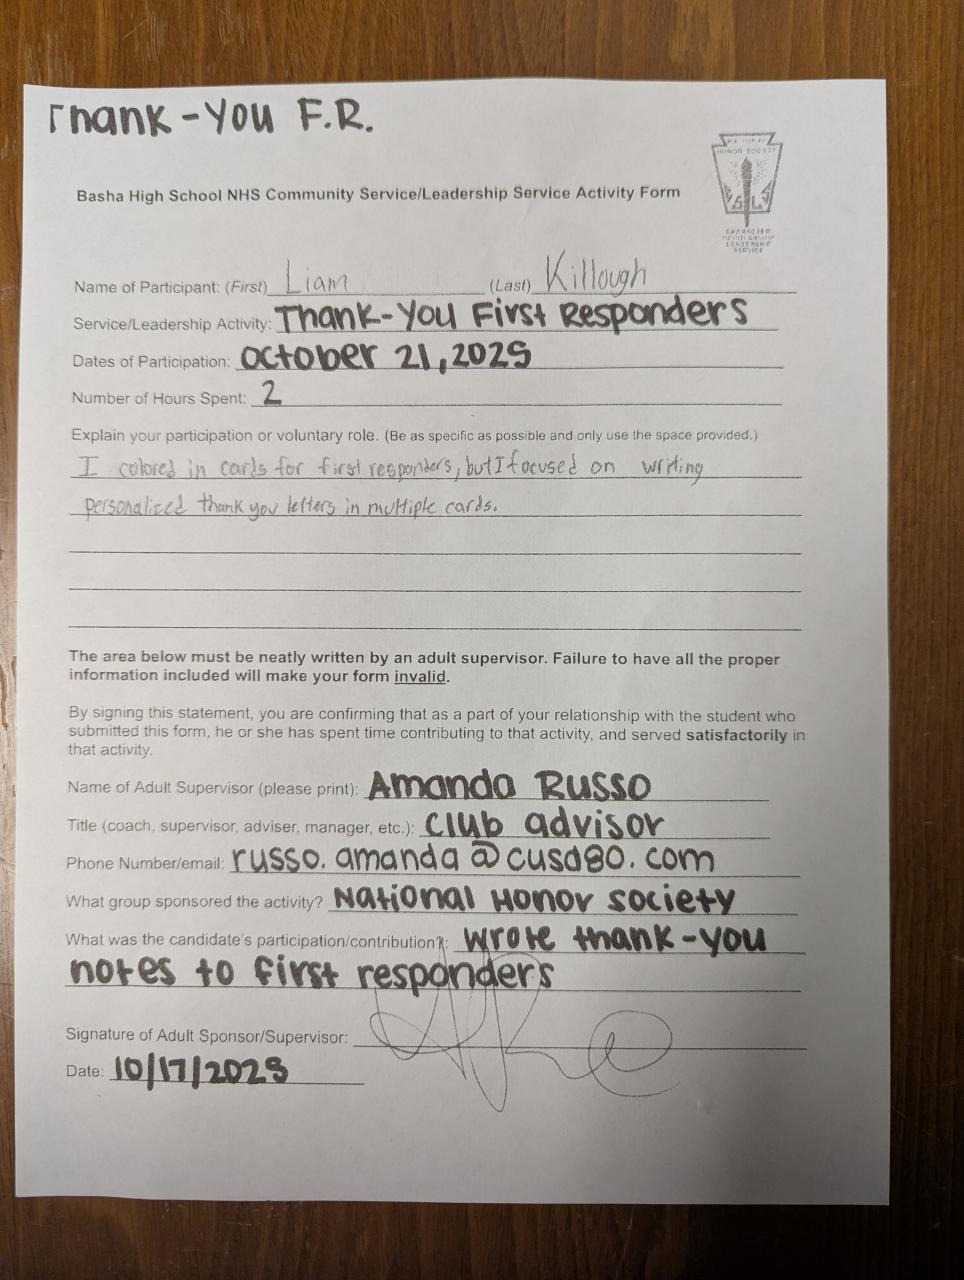 Thank-You F.R.
NATIONAL
HONOR SOCIETY
S L
CHARACTER
SCHOLARSHIP
LEADERSHIP
SERVICE
Basha High School NHS Community Service/Leadership Service Activity Form
Name of Participant: (First) Liam (Last) Killough
Service/Leadership Activity: Thank-You First Responders
Dates of Participation: October 21, 2025
Number of Hours Spent: 2
Explain your participation or voluntary role. (Be as specific as possible and only use the space provided.)
I colored in cards for first responders, but I focused on writing
personalized thank you letters in multiple cards.
The area below must be neatly written by an adult supervisor. Failure to have all the proper
information included will make your form invalid.
By signing this statement, you are confirming that as a part of your relationship with the student who
submitted this form, he or she has spent time contributing to that activity, and served satisfactorily in
that activity.
Name of Adult Supervisor (please print): Amanda Russo
Title (coach, supervisor, adviser, manager, etc.): Club advisor
Phone Number/email: russo.amanda@cusd80.com
What group sponsored the activity? National Honor Society
What was the candidate's participation/contribution?: Wrote thank-you
notes to first responders
Signature of Adult Sponsor/Supervisor:
Date: 10/17/2025